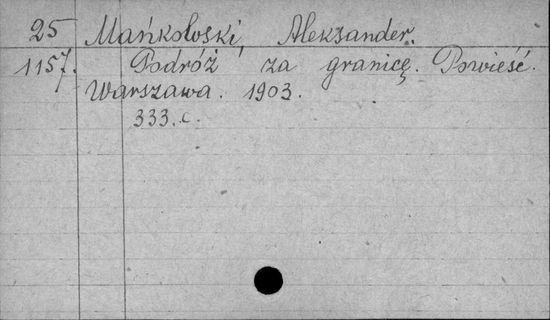 25 Mańkołoski, Aleksander.
1157. Podróż za granicę. Powieść.
Warszawa. 1903.
333. c.